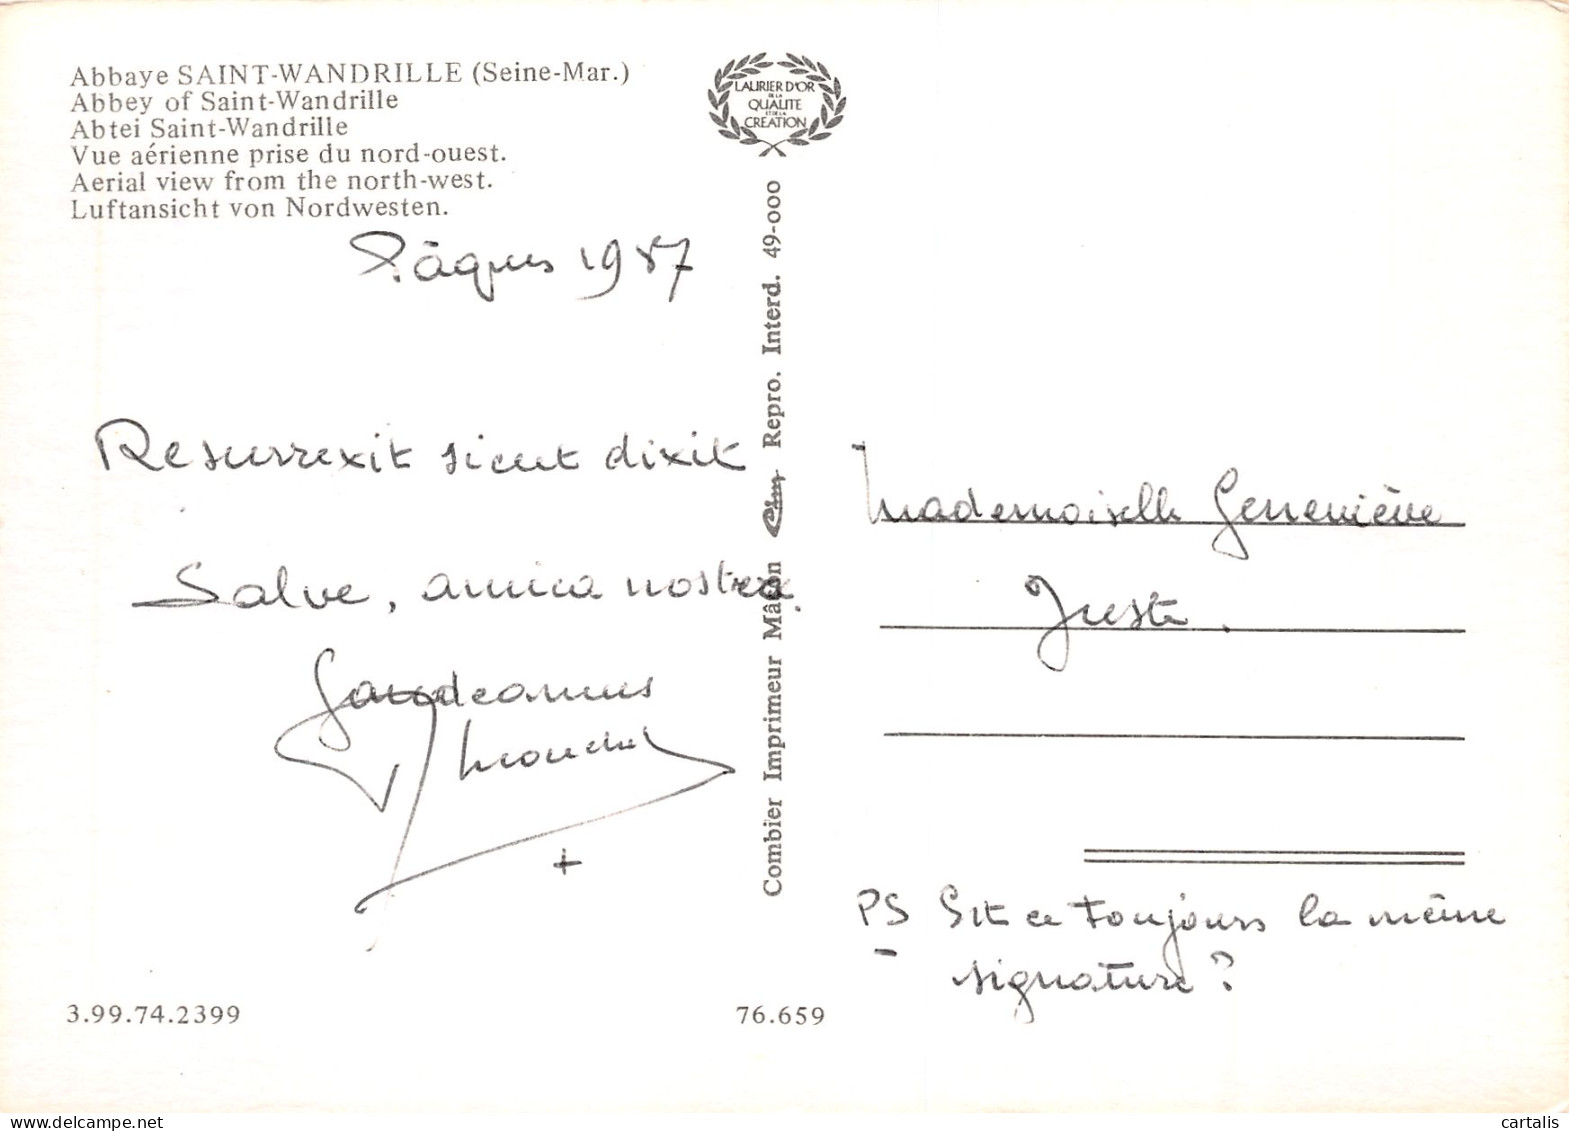 Abbaye SAINT-WANDRILLE (Seine-Mar.)
Abbey of Saint-Wandrille
Abtei Saint-Wandrille
Vue aérienne prise du nord-ouest.
Aerial view from the north-west.
Luftansicht von Nordwesten.
LAURIER D'OR
DE LA
QUALITE
ET DE LA
CREATION
Pâques 1987
Resurrexit sicut dixit
Salve, amica nostra.
Gaudeamus
+
Combier Imprimeur Mâcon Cim Repro. Interd. 49-000
Mademoiselle Geneviève
Juste.
PS Est ce toujours la même
signature ?
3.99.74.2399
76.659
cartalis
www.delcampe.net